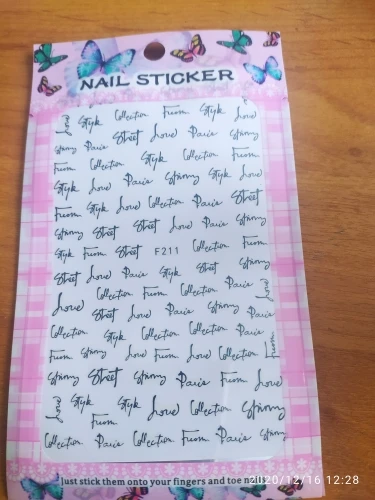 NAIL STICKER
Style Collection From Style Love
Spring Paris Street Love Paris Spring
From Collection Style Collection From
Style Love Paris Spring Style Love
From Style Love Collection Paris Street
Spring Street Street Love Paris Spring
Style From Street F211 Collection From
Street Love Paris Style Street Spring
Collection From Collection Paris Love
Love Style Street Love Paris Spring Paris
Collection Style Collection Collection Paris
From Spring Love From Love Collection From
Spring Street Spring Paris From Love
Style Style Love Collection Spring
From
Collection Paris Collection From Paris Spring
Just stick them onto your fingers and toe nail
2020/12/16 12:28